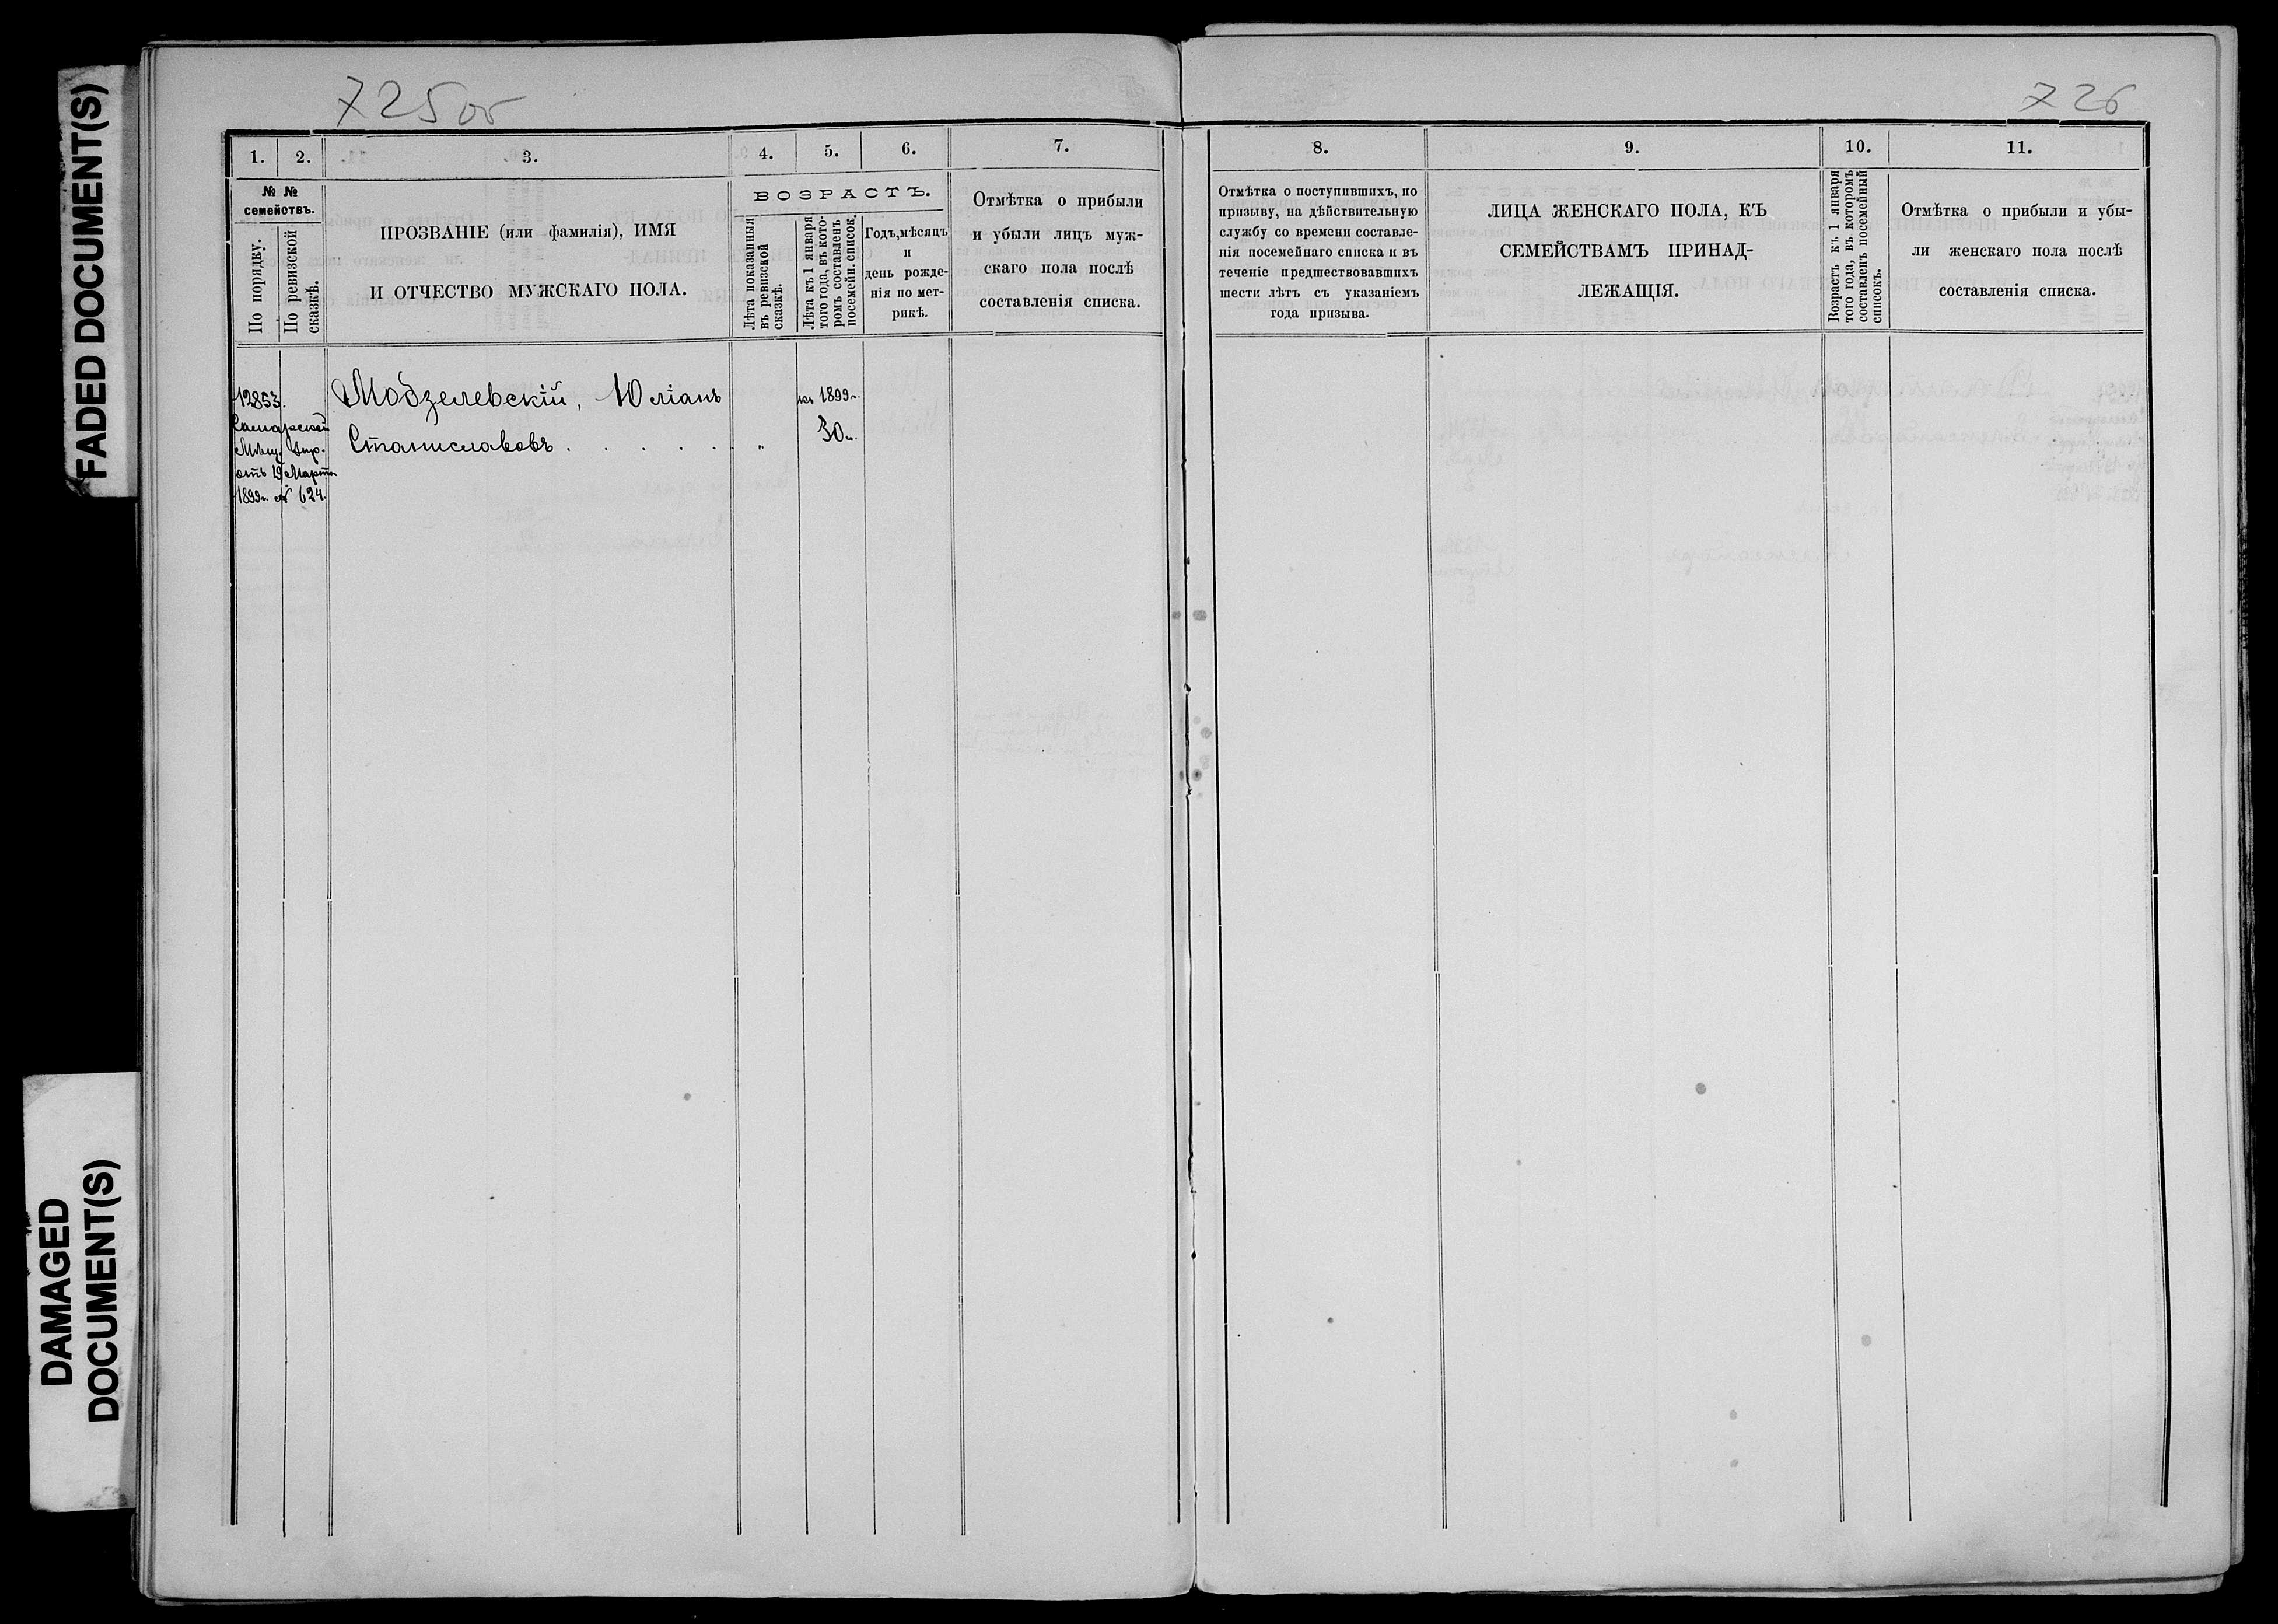 FADED DOCUMENT(S)
DAMAGED
DOCUMENT(S)
725об
1.
2.
3.
4.
5.
6.
7.
№ №
семействъ.
По порядку.
По ревизской
сказкѣ.
ПРОЗВАНІЕ (или фамилія), ИМЯ
И ОТЧЕСТВО МУЖСКАГО ПОЛА.
ВОЗРАСТЪ.
Лѣта показанныя
въ ревизской
сказкѣ.
Лѣта къ 1 января
того года, въ кото-
ромъ составленъ
посемейн. списокъ.
Годъ, мѣсяцъ
и
день рожде-
нія по мет-
рикѣ.
Отмѣтка о прибыли
и убыли лицъ муж-
скаго пола послѣ
составленія списка.
12853.
Самарской
Мѣщ. Упр.
отъ 19 Марта
1899г. № 624.
Модзелевскій, Юліанъ
Станиславовъ . . . . . .
"
на 1899г.
30л.
726
8.
9.
10.
11.
Отмѣтка о поступившихъ, по
призыву, на дѣйствительную
службу со времени составле-
нія посемейнаго списка и въ
теченіе предшествовавшихъ
шести лѣтъ съ указаніемъ
года призыва.
ЛИЦА ЖЕНСКАГО ПОЛА, КЪ
СЕМЕЙСТВАМЪ ПРИНАД-
ЛЕЖАЩІЯ.
Возрастъ къ 1 января
того года, въ которомъ
составленъ посемейный
списокъ.
Отмѣтка о прибыли и убы-
ли женскаго пола послѣ
составленія списка.